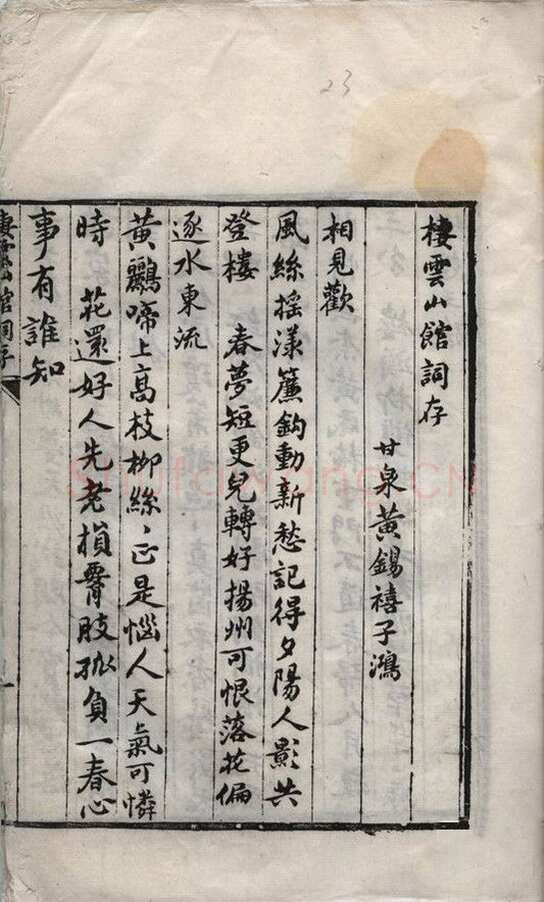 23
棲雲山館詞存
甘泉黃錫禧子鴻
相見歡
風絲搖漾簾鈎動新愁記得夕陽人影共
登樓　春夢短更兒轉好揚州可恨落花偏
逐水東流
黃鸝啼上高枝柳絲〻正是惱人天氣可憐
時　花還好人先老損腰肢孤負一春心
事有誰知
棲雲山館詞存